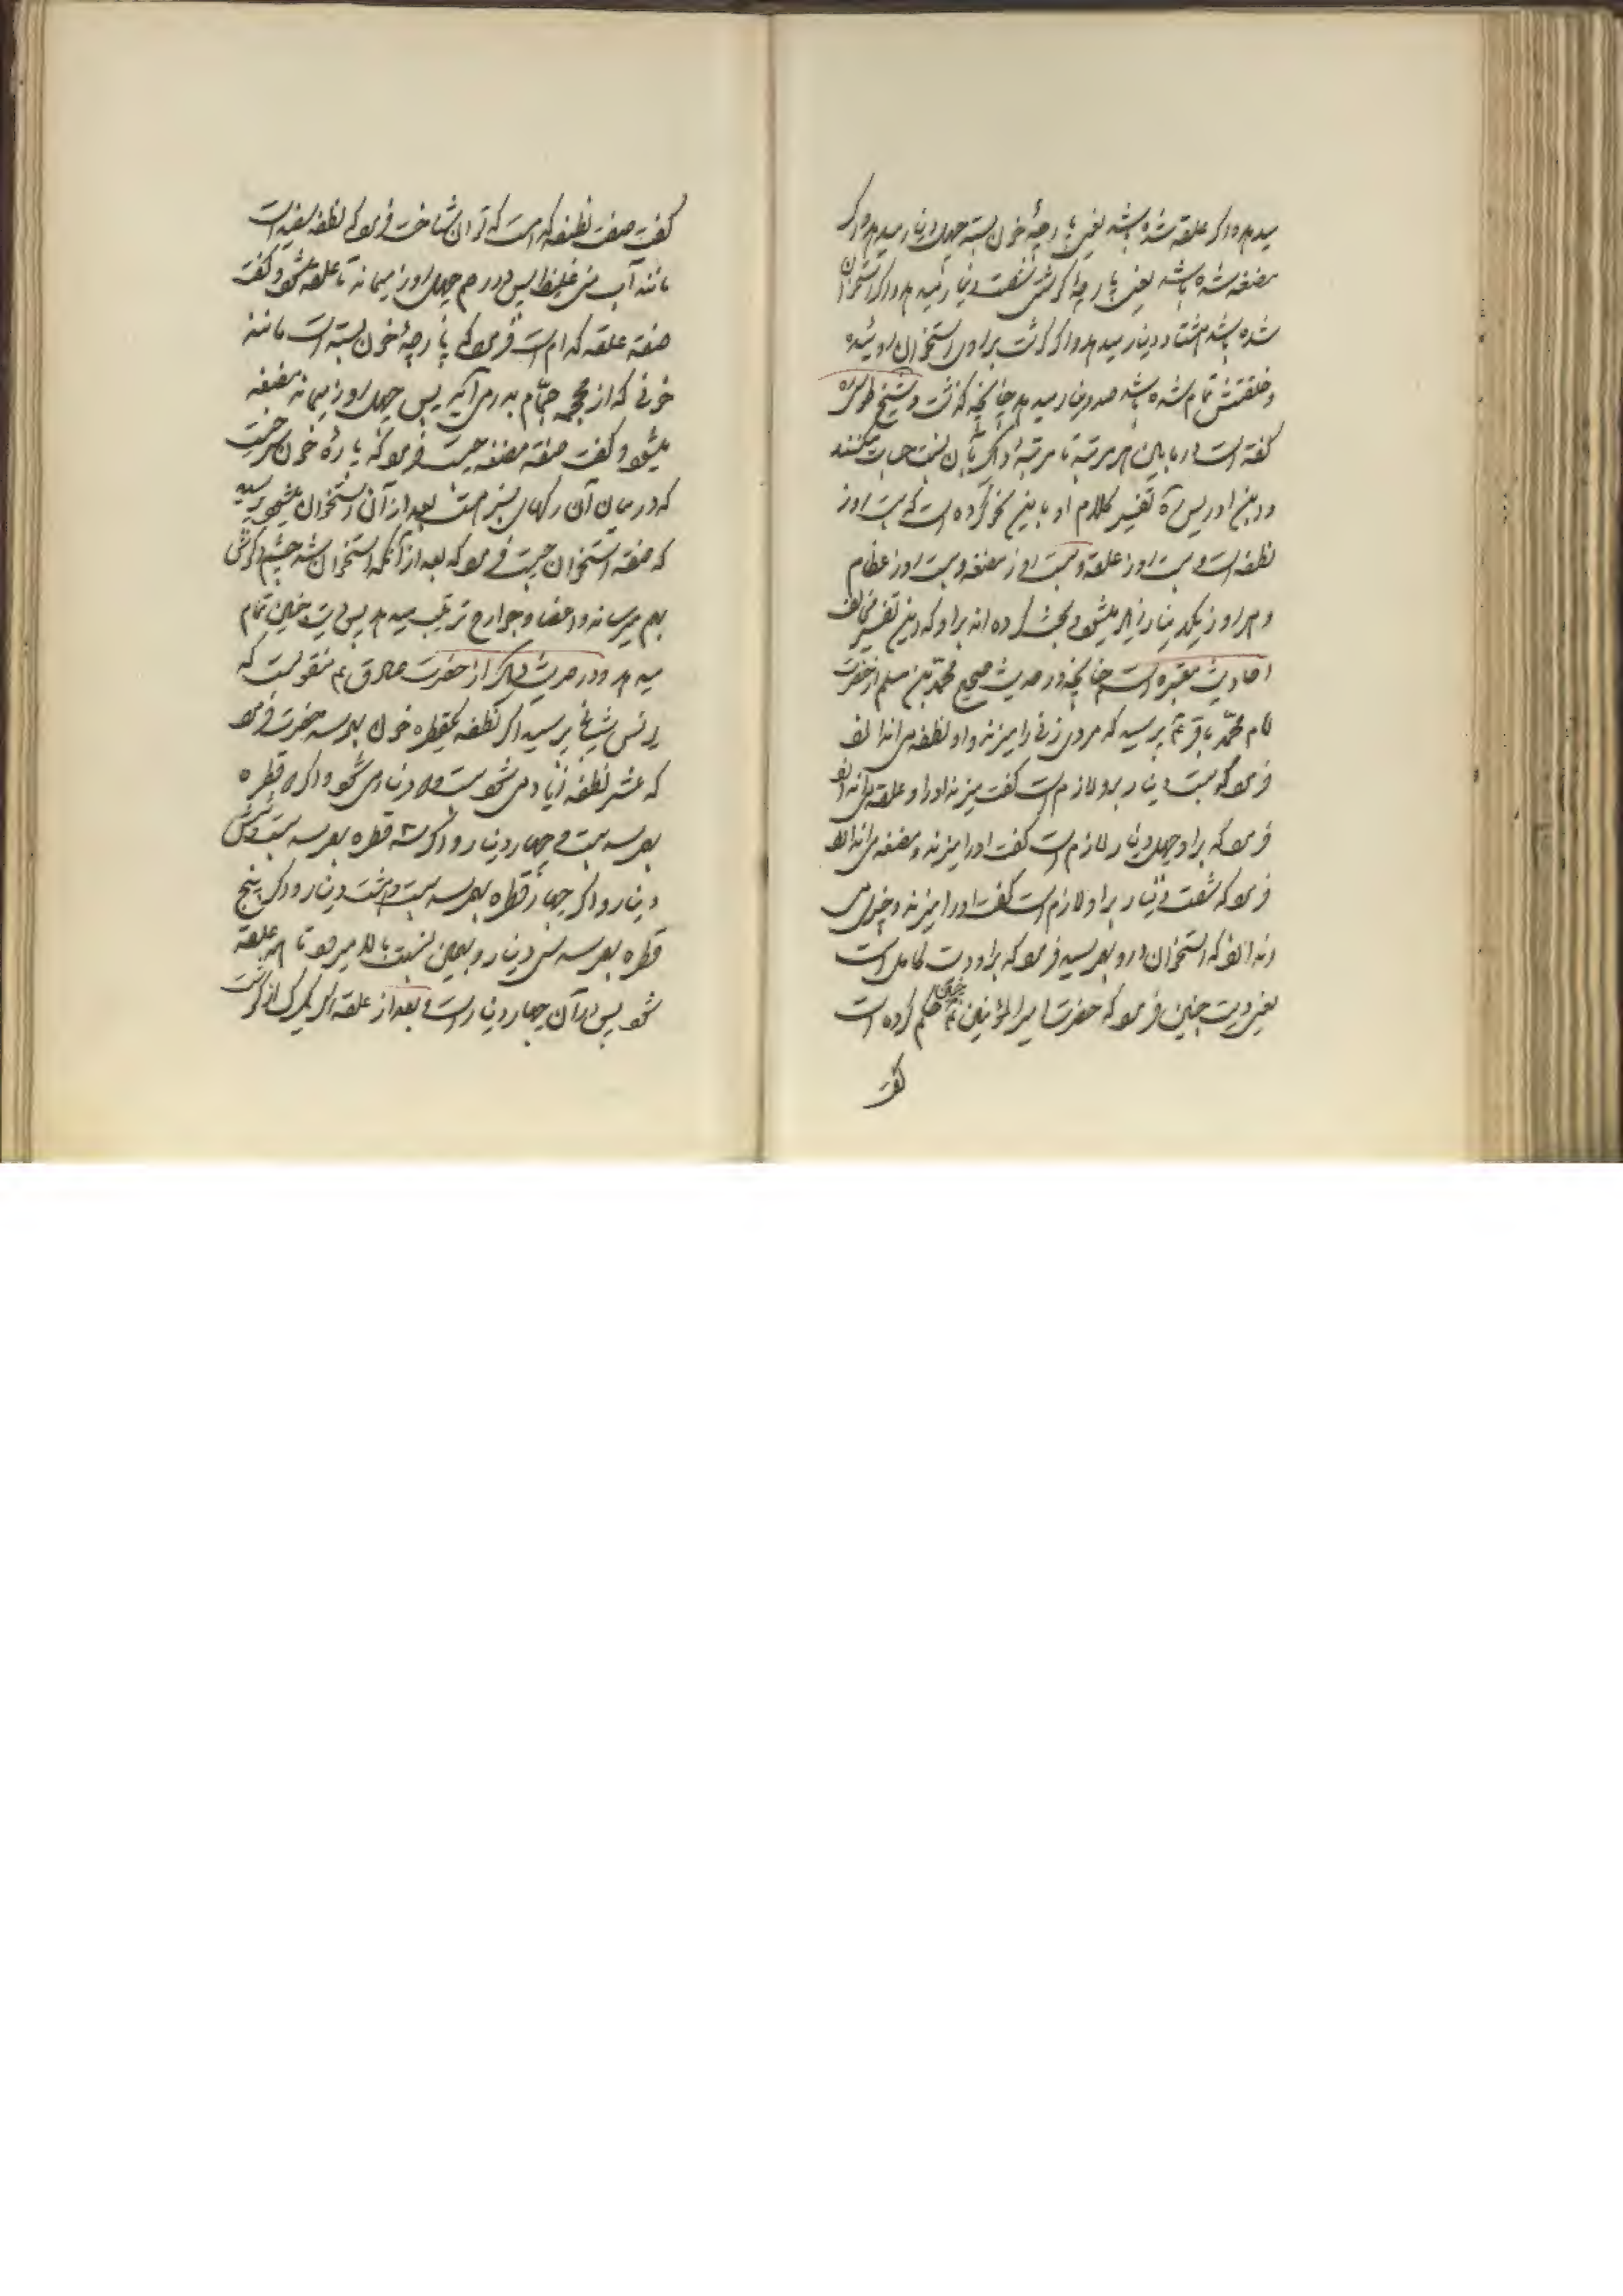 میدهد و اگر علقه شده باشد یعنی پارچهٔ خون بسته چهل دینار میدهد و اگر
مضغه شده باشد یعنی پارچه گوشتی شصت دینار میدهد و اگر استخوان
شده باشد هشتاد دینار میدهد و اگر گوشت بر روی استخوان روئیده
و خلقتش تمام شده باشد صد دینار میدهد چنانچه گذشت و شیخ طوسی ره
گفته است در مابین هر مرتبه تا مرتبهٔ دیگر بآن نسبت حساب میکنند
و ابن ادریس ره تفسیر کلام او باین نحو کرده است که بیست روز
نطفه است و بیست روز علقه و بیست روز مضغه و بیست روز عظام
و هر روز یکدینار زیاد میشود و بحث کرده اند بر او که این تفسیر مخالف
احادیث معتبره است چنانچه در حدیث صحیح محمد بن مسلم از حضرت
امام محمد باقر ع پرسید که مردی زنی را میزند و او نطفه می اندازد
فرمود که بیست دینار برو لازم است گفت میزند او را و علقه می اندازد
فرمود که بر او چهل دینار لازم است گفت او را میزند و مضغه می اندازد
فرمود که شصت دینار بر او لازم است گفت او را میزند و چیزی می
اندازد که استخوان دارد پرسید فرمود که بر او دیت کامل است
یعنی دیت جنین فرمود که حضرت امیر المؤمنین ع چنین حکم کرده است
گفت
گفت صفت نطفه کدام است که توان شناخت فرمود که نطفه سفید است
مانند آب بینی غلیظ پس در رحم چهل روز میماند تا علقه میشود و گفت
صفت علقه کدام است فرمود که پارچهٔ خون بسته است مانند
خونی که از محجمه حجام بدر می آید پس چهل روز میماند مضغه
میشود و گفت صفت مضغه چیست فرمود که پارهٔ خون سرخیست
که در میان آن رگهای سبز هست بعد از آن استخوان میشود پرسید
که صفت استخوان چیست فرمود که بعد از آنکه استخوان شد چشم و گوش
بهم میرساند و اعضا و جوارح ترتیب میدهد پس دیت جنین تمام
میدهد و در حدیث دیگر از حضرت صادق ع منقولست که
یونس شیبانی پرسید اگر نطفه یکقطره خون بهمرسد حضرت فرمود
که عشر نطفه زیاد می شود بیست و دو دینار می شود و اگر دو قطره
بهمرسد بیست و چهار دینار و اگر سه قطره بهمرسد بیست و شش
دینار و اگر چهار قطره بهمرسد بیست و هشت دینار و اگر پنج
قطره بهمرسد سی دینار و بهمین نسبت بالا میرود تا همه علقه
شود پس در آن چهل دینار است و بعد از علقه اگر یک رگ از گوشت